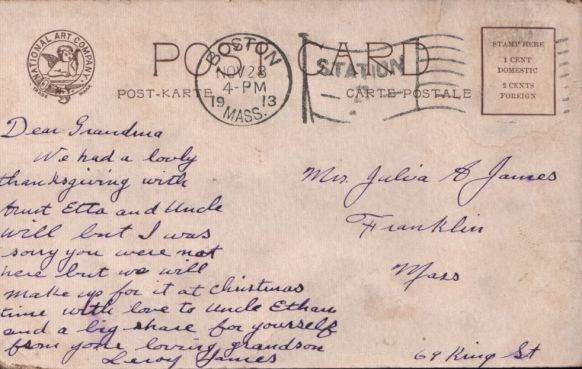 NATIONAL ART COMPANY
N.Y.
TRADE MARK
POST CARD
POST-KARTE
CARTE-POSTALE
BOSTON
NOV 28
4-PM
1913
MASS.
STATION
STAMP HERE
1 CENT
DOMESTIC
2 CENTS
FOREIGN
Dear Grandma
We had a lovly
thanksgiving with
Aunt Etta and Uncle
Will but I was
sorry you were not
here but we will
make up for it at christmas
time with love to Uncle Ethan
and a big share for yourself
from your loving grandson
Leroy James
Mrs. Julia A James
Franklin
Mass
69 King St